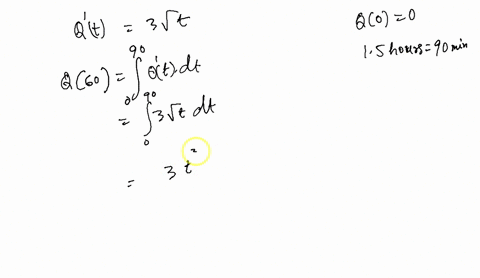 Q'(t) = 3√t
Q(0) = 0
1.5 hours = 90 min
Q(60) = ∫₀⁹⁰ Q'(t).dt
= ∫₀⁹⁰ 3√t dt
= 3 t